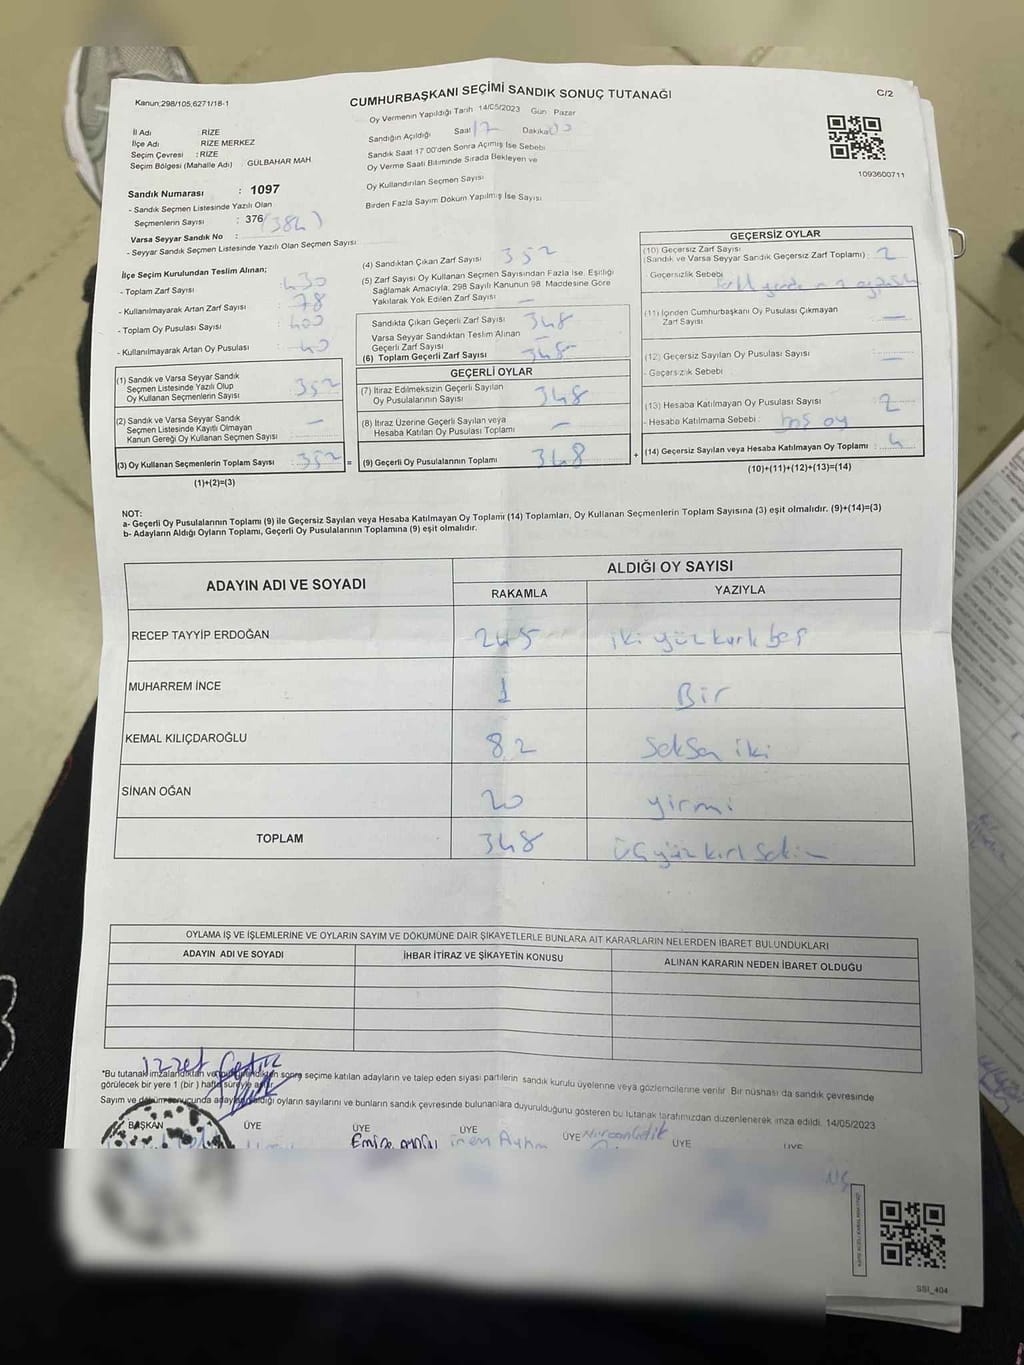 Kanun;298/105,6271/18-1
CUMHURBAŞKANI SEÇİMİ SANDIK SONUÇ TUTANAĞI
C/2
Oy Vermenin Yapıldığı Tarih 14/05/2023 Gün Pazar
Sandığın Açıldığı Saat 17 Dakika 00
Sandık Saat 17 00'den Sonra Açılmış İse Sebebi
Oy Verme Saati Bitiminde Sırada Bekleyen ve
Oy Kullandırılan Seçmen Sayısı
Birden Fazla Sayım Döküm Yapılmış İse Sayısı
1093600711
İl Adı RİZE
İlçe Adı RİZE MERKEZ
Seçim Çevresi : RİZE
Seçim Bölgesi (Mahalle Adı) : GÜLBAHAR MAH
Sandık Numarası : 1097
- Sandık Seçmen Listesinde Yazılı Olan
Seçmenlerin Sayısı : 376 (384)
Varsa Seyyar Sandık No :
- Seyyar Sandık Seçmen Listesinde Yazılı Olan Seçmen Sayısı
İlçe Seçim Kurulundan Teslim Alınan;
- Toplam Zarf Sayısı : 430
- Kullanılmayarak Artan Zarf Sayısı : 78
- Toplam Oy Pusulası Sayısı : 400
- Kullanılmayarak Artan Oy Pusulası : 40
(1) Sandık ve Varsa Seyyar Sandık
Seçmen Listesinde Yazılı Olup
Oy Kullanan Seçmenlerin Sayısı : 352
(2) Sandık ve Varsa Seyyar Sandık
Seçmen Listesinde Kayıtlı Olmayan
Kanun Gereği Oy Kullanan Seçmen Sayısı : —
(3) Oy Kullanan Seçmenlerin Toplam Sayısı : 352 =
(1)+(2)=(3)
(4) Sandıktan Çıkan Zarf Sayısı 352
(5) Zarf Sayısı Oy Kullanan Seçmen Sayısından Fazla İse, Eşitliği
Sağlamak Amacıyla, 298 Sayılı Kanunun 98. Maddesine Göre
Yakılarak Yok Edilen Zarf Sayısı —
Sandıkta Çıkan Geçerli Zarf Sayısı 348
Varsa Seyyar Sandıktan Teslim Alınan
Geçerli Zarf Sayısı —
(6) Toplam Geçerli Zarf Sayısı 348
GEÇERLİ OYLAR
(7) İtiraz Edilmeksizin Geçerli Sayılan
Oy Pusulalarının Sayısı 348
(8) İtiraz Üzerine Geçerli Sayılan veya
Hesaba Katılan Oy Pusulası Toplamı —
(9) Geçerli Oy Pusulalarının Toplamı 348 +
GEÇERSİZ OYLAR
(10) Geçersiz Zarf Sayısı
(Sandık ve Varsa Seyyar Sandık Geçersiz Zarf Toplamı) : 2
- Geçersizlik Sebebi :
(11) İçinden Cumhurbaşkanı Oy Pusulası Çıkmayan
Zarf Sayısı —
(12) Geçersiz Sayılan Oy Pusulası Sayısı —
- Geçersizlik Sebebi
(13) Hesaba Katılmayan Oy Pusulası Sayısı : 2
- Hesaba Katılmama Sebebi : boş oy
(14) Geçersiz Sayılan veya Hesaba Katılmayan Oy Toplamı : 4
(10)+(11)+(12)+(13)=(14)
NOT:
a- Geçerli Oy Pusulalarının Toplamı (9) ile Geçersiz Sayılan veya Hesaba Katılmayan Oy Toplamı (14) Toplamları, Oy Kullanan Seçmenlerin Toplam Sayısına (3) eşit olmalıdır. (9)+(14)=(3)
b- Adayların Aldığı Oyların Toplamı, Geçerli Oy Pusulalarının Toplamına (9) eşit olmalıdır.
ADAYIN ADI VE SOYADI ALDIĞI OY SAYISI
RAKAMLA YAZIYLA
RECEP TAYYİP ERDOĞAN 245 iki yüz kırk beş
MUHARREM İNCE 1 Bir
KEMAL KILIÇDAROĞLU 82 Seksen iki
SİNAN OĞAN 20 yirmi
TOPLAM 348 üç yüz kırk sekiz
OYLAMA İŞ VE İŞLEMLERİNE VE OYLARIN SAYIM VE DÖKÜMÜNE DAİR ŞİKAYETLERLE BUNLARA AİT KARARLARIN NELERDEN İBARET BULUNDUKLARI
ADAYIN ADI VE SOYADI İHBAR İTİRAZ VE ŞİKAYETİN KONUSU ALINAN KARARIN NEDEN İBARET OLDUĞU
izzet Çetin
*Bu tutanak imzalandıktan ve sonra seçime katılan adayların ve talep eden siyasi partilerin sandık kurulu üyelerine veya gözlemcilerine verilir. Bir nüshası da sandık çevresinde
görülecek bir yere 1 (bir) hafta süreyle asılır.
Sayım ve döküm sonucunda adayların aldığı oyların sayılarını ve bunların sandık çevresinde bulunanlara duyurulduğunu gösteren bu tutanak tarafımızdan düzenlenerek imza edildi. 14/05/2023
BAŞKAN ÜYE ÜYE ÜYE ÜYE ÜYE ÜYE
SSI_404